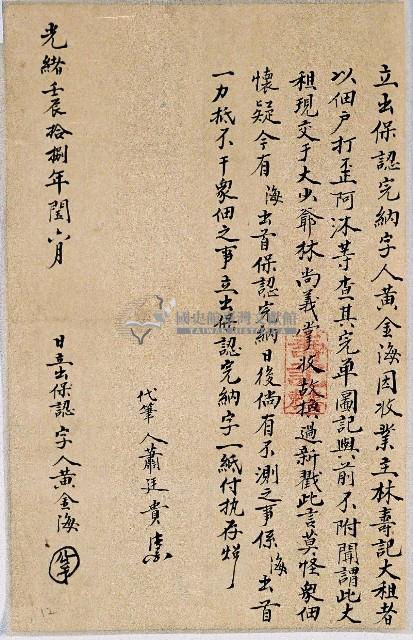 立出保認完納字人黃金海因收業主林壽記大租者
以佃戶打歪阿沐等查其完单圖記與前不附聞謂此大
租現交于大少爺林尚義堂收故換過新戳此言莫怪眾佃
懷疑今有海出首保認完納日後倘有不測之事係海出首
一力抵不干眾佃之事立出保認完納字一紙付执存炤
代筆人蕭廷貴
光緒壬辰拾捌年閏六月
日立出保認字人黃金海
國史館臺灣文獻館
12